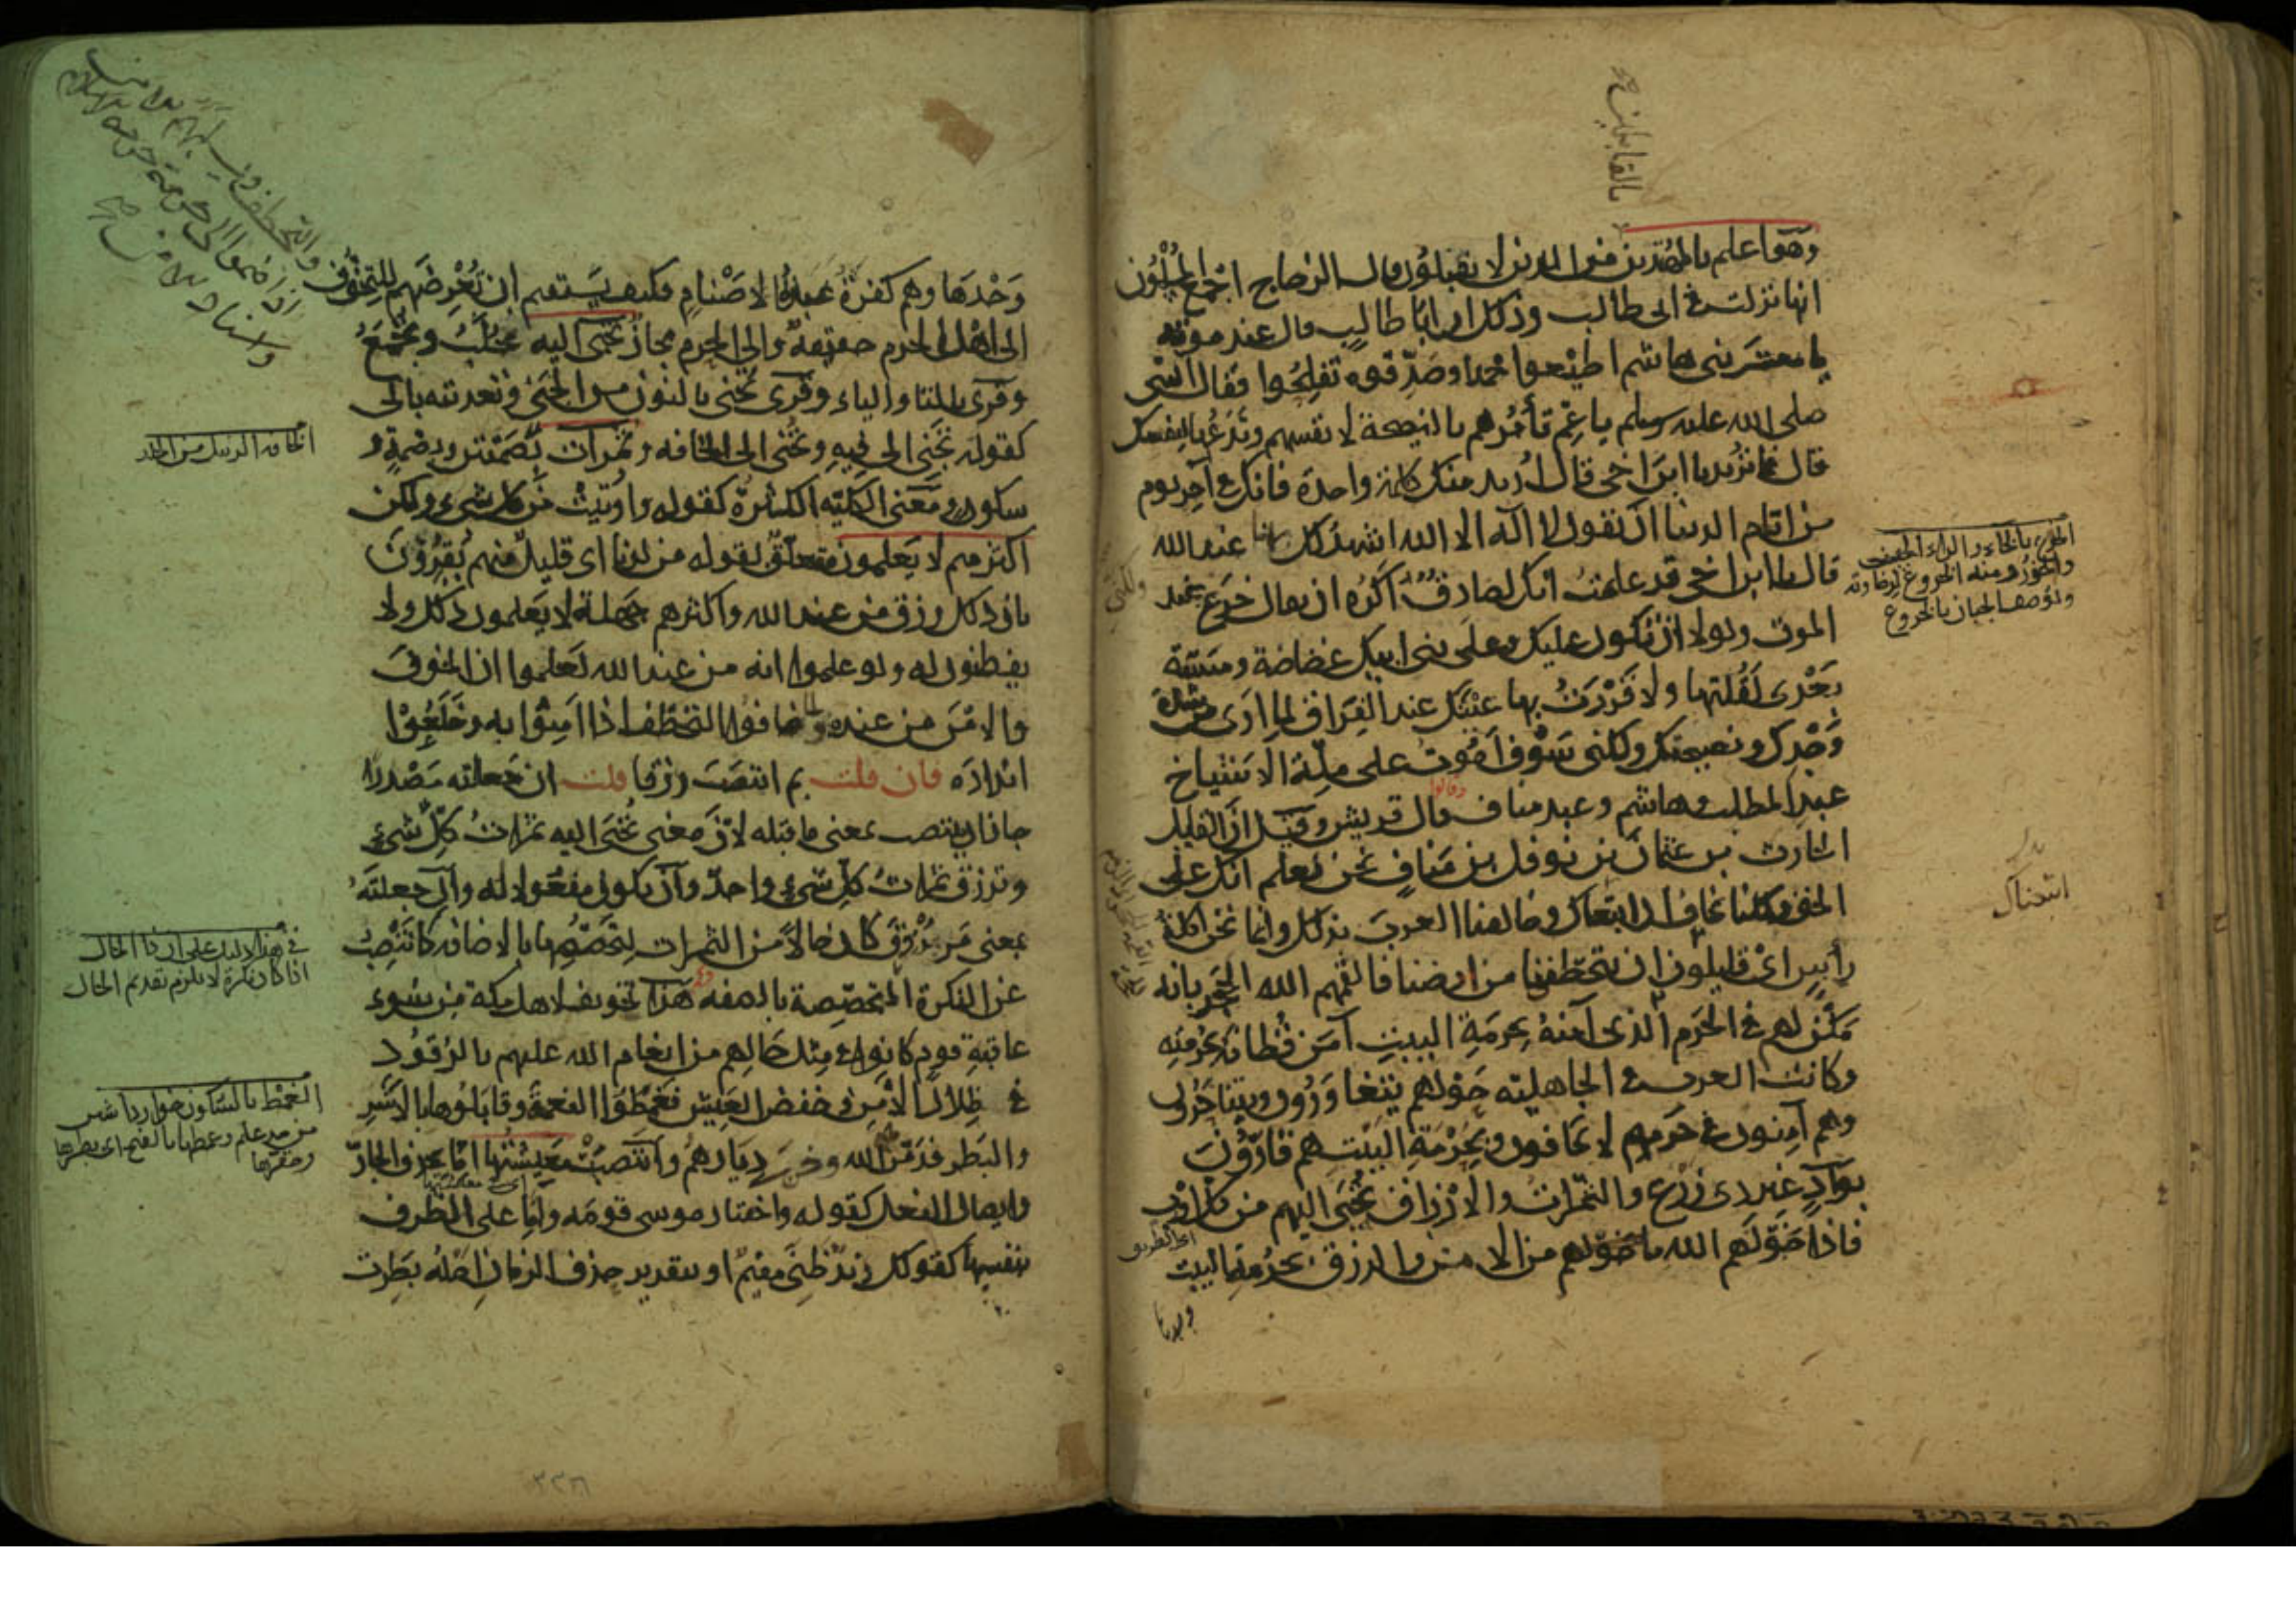 وهو اعلم بالمهتدين من الذين لا يقبلون قال الزجاج اجمع المسلمون
انها نزلت في ابي طالب وذلك ان ابا طالب قال عند موته
يا معشر بني هاشم اطيعوا محمدا وصدقوه تفلحوا فقال النبي
صلى الله عليه وسلم يا عم تأمرهم بالنصيحة لانفسهم وتدعها لنفسك
قال فما تريد يا ابن اخي قال اريد منك كلمة واحدة فانك في آخر يوم
من ايام الدنيا ان تقول لا اله الا الله اشهد لك بها عند الله
قال يا ابن اخي قد علمت انك لصادق ولكني اكره ان يقال خرع عند
الموت ولولا ان تكون عليك وعلى بني ابيك غضاضة ومسبّة
بعدي لقلتها ولأقررت بها عينك عند الفراق لما ارى من شدة
وجدك ونصيحتك ولكني سوف اموت على ملة الاشياخ
عبد المطلب وهاشم وعبد مناف وقالوا قال قريش وقيل ان القايل
الحارث بن عثمان بن نوفل بن مناف نحن نعلم انك على
الحق ولكنا نخاف ان اتبعناك وخالفنا العرب بذلك وانما نحن اكلة
رأس اي قليلون ان يتخطفونا من ارضنا فالقمهم الله الحجر بانه
مكن لهم في الحرم الذي آمنه بحرمة البيت آمن قطانه بحرمته
وكانت العرب في الجاهلية حولهم يتغاورون ويتناحرون
وهم آمنون في حرمهم لا يخافون وبحرمة البيت هم قارّون
بواد غير ذي زرع والثمرات والارزاق تجبى اليهم من كل اوب
فاذا خوّلهم الله ما خوّلهم من الامن والرزق بحرمة البيت
وحدها
بالقابلين
الخرع بالخاء والراء الضعف
والخور ومنه الخروع لرخاوته
ويوصف الجبان بالخروع
اتبعناك
وحدها وهم كفرة عبدة الاصنام فكيف يستقيم ان يعرضهم للتخوف
الى اهل الحرم حقيقة والى الحرم مجاز تجبى اليه تجلب وتجمع
وقرئ بالتا والياء وقرئ تجنى بالنون من الجنى وتعديته بالى
كقوله تجنى الى فيه وتجنى الى الخافة وثمرات بضمتين وبضمة و
سكون ومعنى الكلية الكثرة كقوله واوتيت من كل شيء ولكن
اكثرهم لا يعلمون متعلق بقوله من لدنا اي قليل منهم يقرون
بان ذلك رزق من عند الله واكثرهم جهلة لا يعلمون ذلك ولا
يفطنون له ولو علموا انه من عند الله لعلموا ان الخوف
والامن من عنده ولما خافوا التخطف اذا آمنوا به وخلعوا
انداده فان قلت بم انتصب رزقا قلت ان جعلته مصدرا
جاز ان ينتصب بمعنى ما قبله لان معنى تجبى اليه ثمرات كل شيء
وترزق ثمرات كل شيء واحد وان يكون مفعولا له وان جعلته
بمعنى مرزوق كان حالا من الثمرات لتخصصها بالاضافة كما تنصب
عن النكرة المتخصصة بالصفة هذا تخويف لاهل مكة من سوء
عاقبة قوم كانوا في مثل حالهم من انعام الله عليهم بالرقود
في ظلال الامن وخفض العيش فغمطوا النعمة وقابلوها بالاشر
والبطر فدمر الله وخرب ديارهم وانتصبت معيشتها اما بحذف الجار
وايصال الفعل كقوله واختار موسى قومه واما على الظرف
بنفسها كقولك زيد ظني مقيم او بتقدير حذف الزمان اصله بطرت
الخافة الزنبيل من الجلد
في هذا دليل على ان ذا الحال
اذا كان نكرة لا يلزم تقديم الحال
الغمط بالسكون
من حد علم وغمطها بالفتح اي بطرها
وحقرها